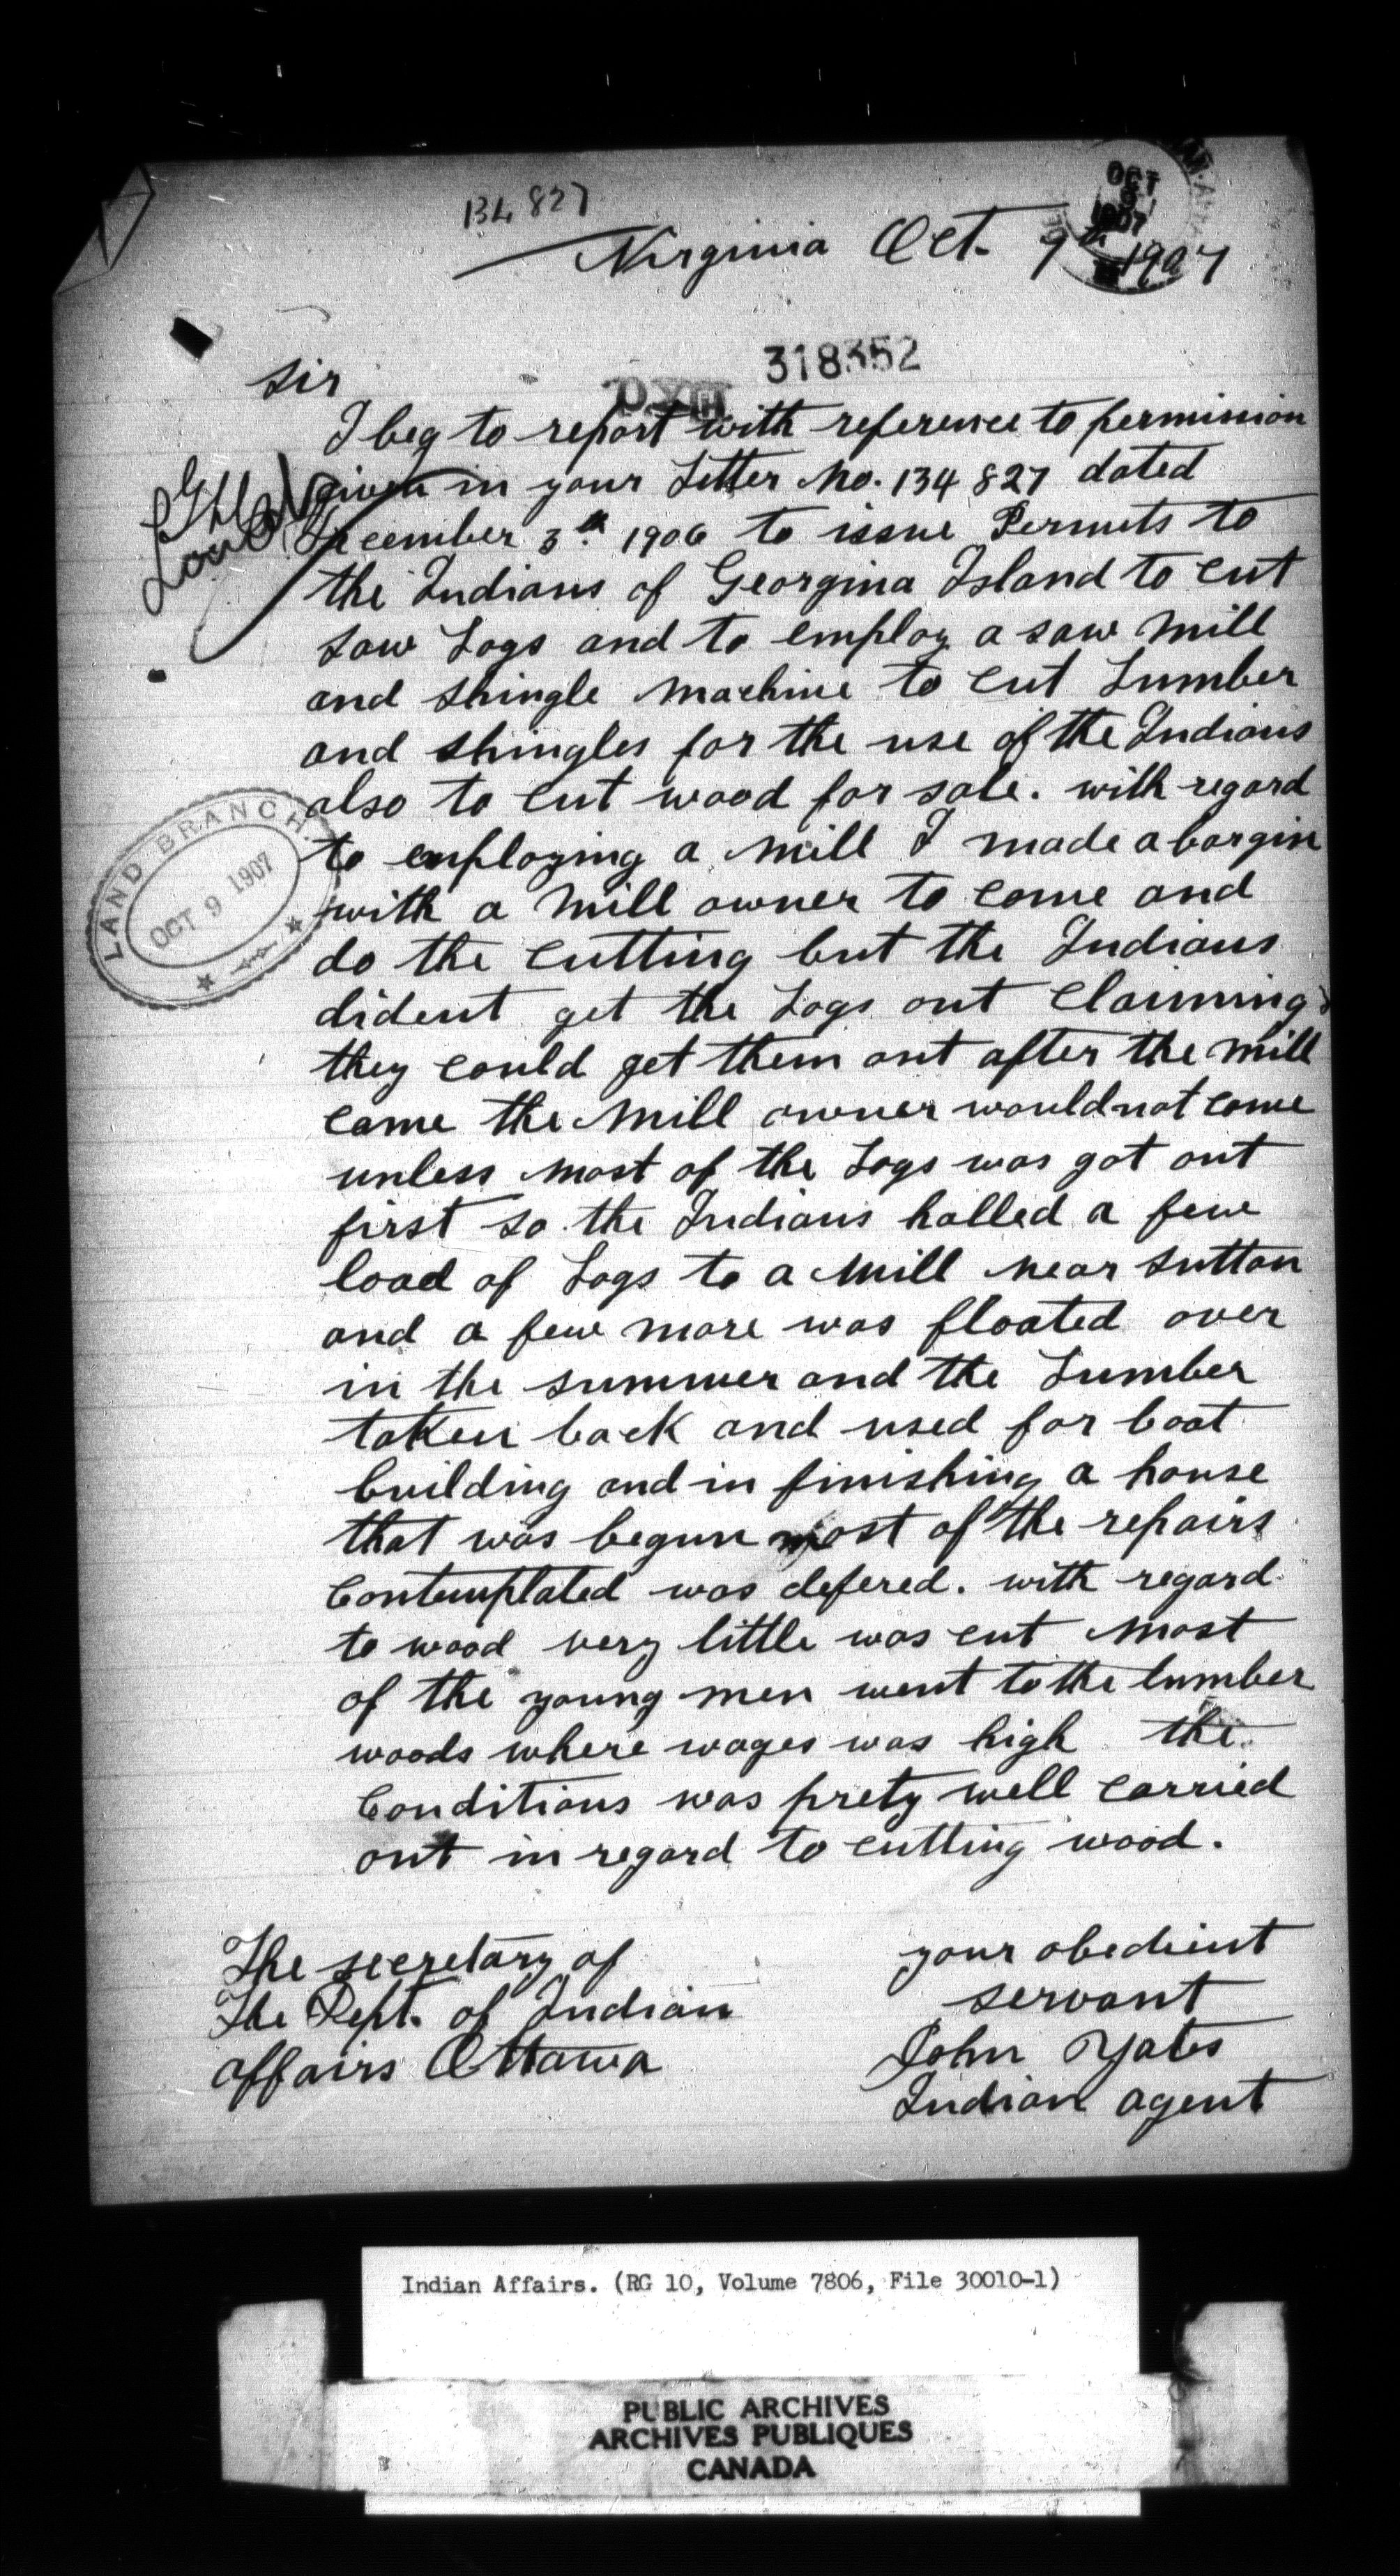 134 827
Virginia Oct. 7th 1907
OCT
1907
318352
Sir
I beg to report with reference to permission
given in your Letter No. 134 827 dated
December 3rd 1906 to issue Permits to
the Indians of Georgina Island to cut
saw Logs and to employ a saw Mill
and shingle Machine to cut Lumber
and shingles for the use of the Indians
also to cut wood for sale. with regard
to employing a Mill I made a bargin
with a Mill owner to come and
do the cutting but the Indians
dident get the Logs out claiming
they could get them out after the Mill
came the Mill owner would not come
unless most of the Logs was got out
first so the Indians halled a few
load of Logs to a Mill near Sutton
and a few more was floated over
in the summer and the Lumber
taken back and used for boat
building and in finishing a house
that was begun most of the repairs
Contemplated was defered. with regard
to wood very little was cut Most
of the young men went to the lumber
woods where wages was high the
Conditions was prety well carried
out in regard to cutting wood.
LAND BRANCH
OCT 9 1907
your obedient
servant
John Yates
Indian agent
The secretary of
The Dept. of Indian
affairs Ottawa
Indian Affairs. (RG 10, Volume 7806, File 30010-1)
PUBLIC ARCHIVES
ARCHIVES PUBLIQUES
CANADA